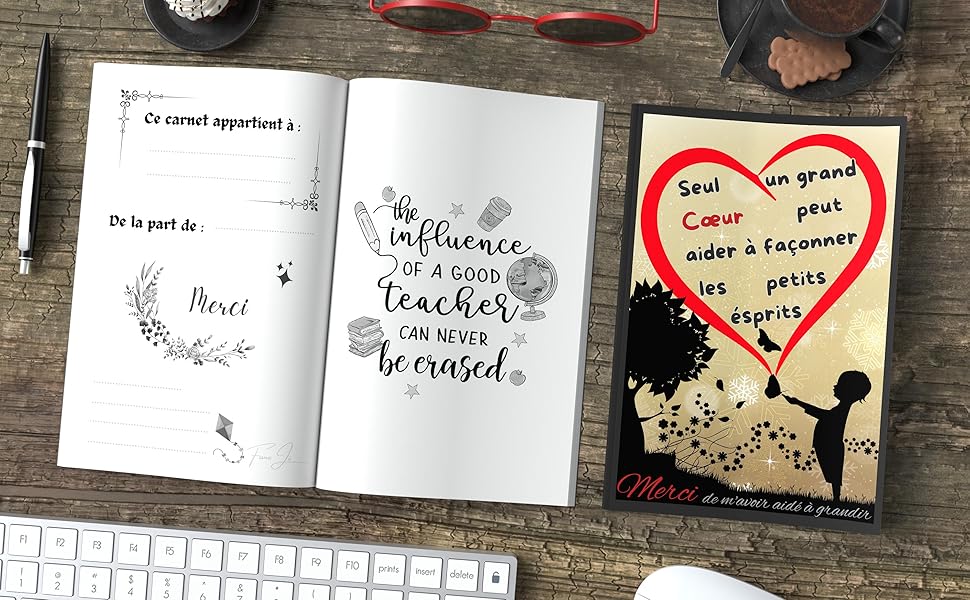 Ce carnet appartient à :
De la part de :
Merci
the
influence
OF A GOOD
teacher
CAN NEVER
be erased
Seul un grand
Cœur peut
aider à façonner
les petits
ésprits
Merci de m'avoir aidé à grandir
F1 F2 F3 F4 F5 F6 F7 F8 F9 F10 prints insert delete
! @ # $ % ^ & *
1 2 3 4 5 6 7 8